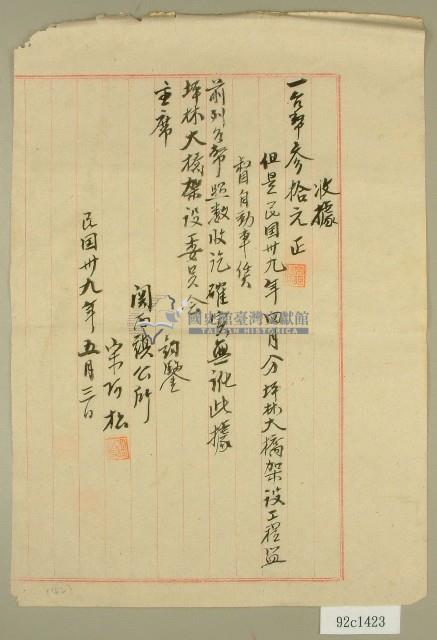 收據
一台幣參拾元正
但是民國卅九年四月分坪林大橋架設工程監
督自動車賃
前列台幣照數收訖確實無訛此據
坪林大橋架設委員会
主席
鈞鑒
公所
宋阿松
民國卅九年五月三日
國史館臺灣文獻館
TAIWAN HISTORICA
92c1423